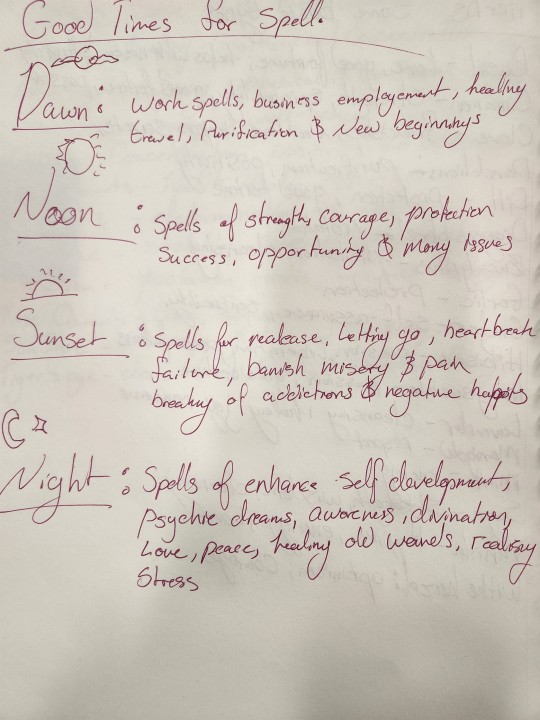 Good Times for Spell.
Dawn: Work spells, business employement, healing
travel, Purification & New beginnings
Noon: Spells of strength, courage, protection
Success, opportunity & many Issues
Sunset: Spells for realease, Letting go, heartbreak
failure, banish misery & pain
breaking of addictions & negative habbits
Night: Spells of enhance self development,
Psychic dreams, awareness, divination,
Love, peace, healing old wounds, realising
Stress